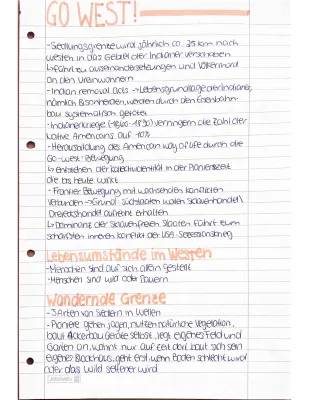 GO WEST!
- Siedlungsgrenze wird jährlich ca. 25 km nach
Westen in das Gebiet der Indianer verschoben
↳ führt zu Auseinandersetzungen und Völkermord
an den Ureinwohnern
- Indian removal acts → Lebensgrundlage der Indianer,
nämlich Bisonherden, werden durch den Eisenbahn-
bau systematisch gerodet
- Indianerkriege (1840-1890) verringern die Zahl der
Native Americans auf 10%
- Herausbildung des American way of life durch die
Go-west-Bewegung
↳ entstehen der Kollektividentität in der Pionierszeit
die bis heute wirkt
- Frontier Bewegung mit wachsenden Konflikten
verbunden → Grund: Südstaaten wollen Sklavenhandel/
Dreieckshandel aufrecht erhalten
↳ Dominanz der sklavenfreien Staaten führt zum
schärfsten inneren Konflikt der USA: Sezessionskrieg
Lebensumstände im Westen
- Menschen sind auf sich allein gestellt
- Menschen sind wild oder Bauern
Wandernde Grenze
- 3 Arten von Siedlern in Wellen
- Pioniere gehen jagen, nutzen natürliche Vegetation,
baut Ackerbau Geräte selbst, legt eigenes Feld und
Garten an, wohnt nur auf Zeit dort, baut sich sein
eigenes Blockhaus, geht erst wenn Boden schlecht wird
oder das Wild seltener wird